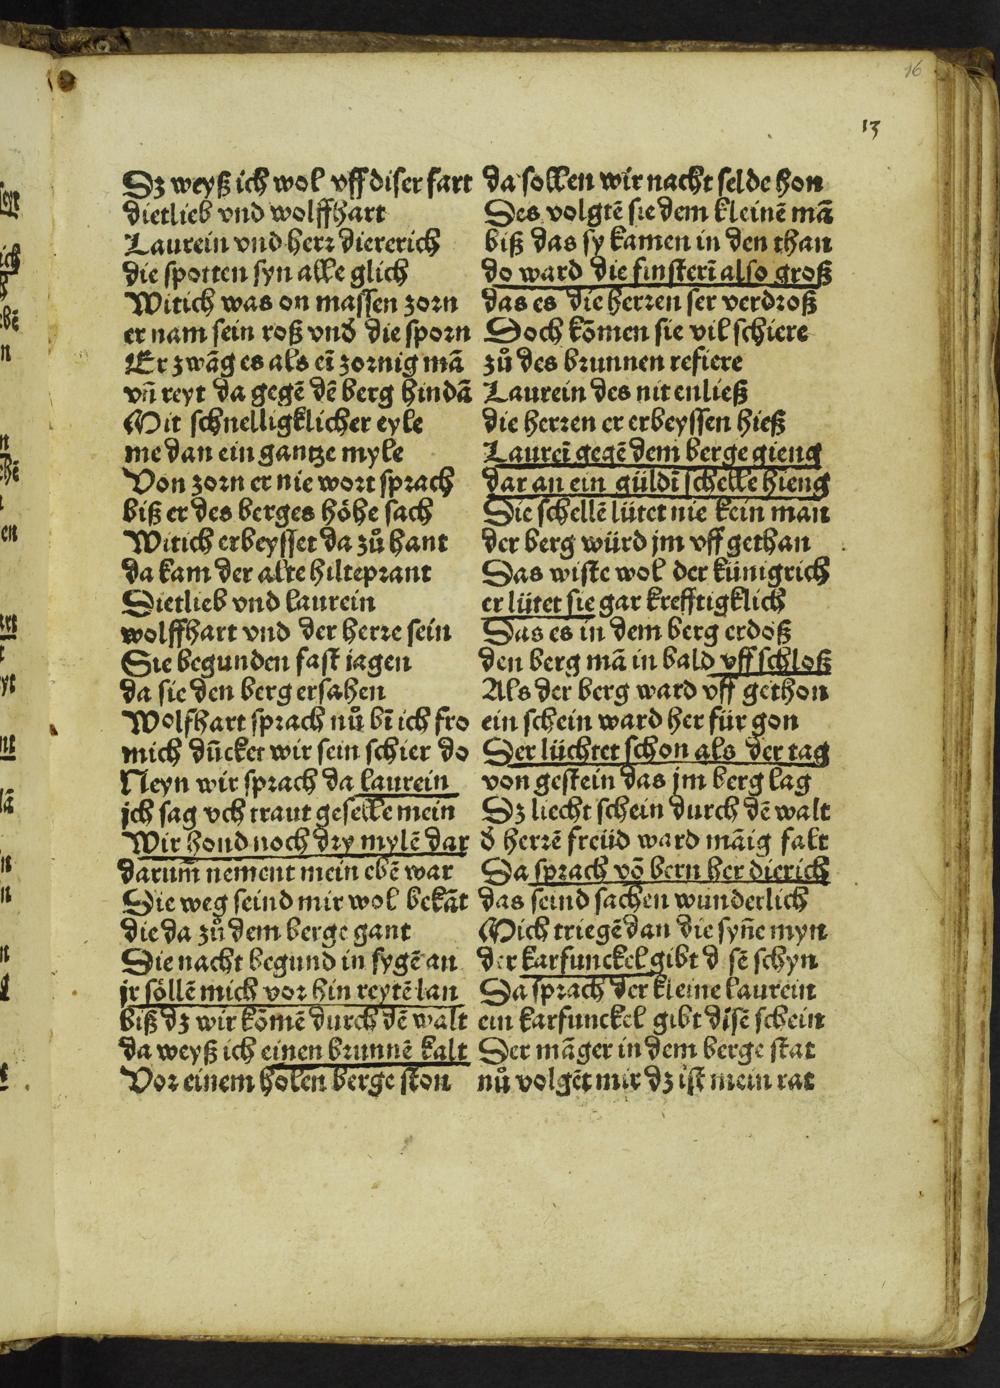 16
13
Dz weyß ich wol vff diser fart
dietlieb vnd wolffhart
Laurein vnd herr diererich
die spotten syn alle glich
Witich was on massen zorn
er nam sein roß vnd die sporn
Er zwãg es als eĩ zornig mã
vñ reyt da gegẽ dẽ berg hindã
Mit schnelligklicher eyle
me dan ein gantze myle
Von zorn er nie wort sprach
biß er des berges höhe sach
Witich erbeysset da zů hant
da kam der alte hilteprant
Dietlieb vnd laurein
wolffhart vnd der herre sein
Sie begunden fast iagen
da sie den berg ersahen
Wolfhart sprach nů bĩ ich fro
mich dũcket wir sein schier do
Neyn wir sprach da laurein
jch sag vch traut geselle mein
Wir hond noch dry mylẽ dar
darum̃ nement mein ebẽ war
Die weg seind mir wol bekãt
die da zů dem berge gant
Die nacht begund in sygẽ an
jr söllẽ mich vor hin reytẽ lan
biß dz wir kõmẽ durch dẽ walt
da weyß ich einen brunnẽ kalt
Vor einem holen berge ston
da sollen wir nacht selde hon
Des volgtẽ sie dem kleinẽ mã
biß das sy kamen in den than
do ward die finsterĩ also groß
das es die herren ser verdroß
Doch kõmen sie vil schiere
zů des brunnen refiere
Laurein des nit enließ
die herren er erbeyssen hieß
Laureĩ gegẽ dem berge gieng
dar an ein güldĩ schelle hieng
Die schellẽ lütet nie kein man
der berg würd jm vff gethan
Das wiste wol der künigrich
er lütet sie gar krefftigklich
Das es in dem berg erdoß
den berg mã in bald vff schloß
Als der berg ward vff gethon
ein schein ward her für gon
Der lüchtet schon als der tag
von gestein das jm berg lag
Dz liecht schein durch dẽ walt
d̕ herrẽ freüd ward mãig falt
Da sprach võ bern her dierich
das seind sachen wunderlich
Mich triegẽ dan die syñe myn
der karfunckel gibt d sẽ schyn
Da sprach der kleine laurein
ein karfunckel gibt disẽ schein
Der mãger in dem berge stat
nů volgẽt mir dz ist mein rat